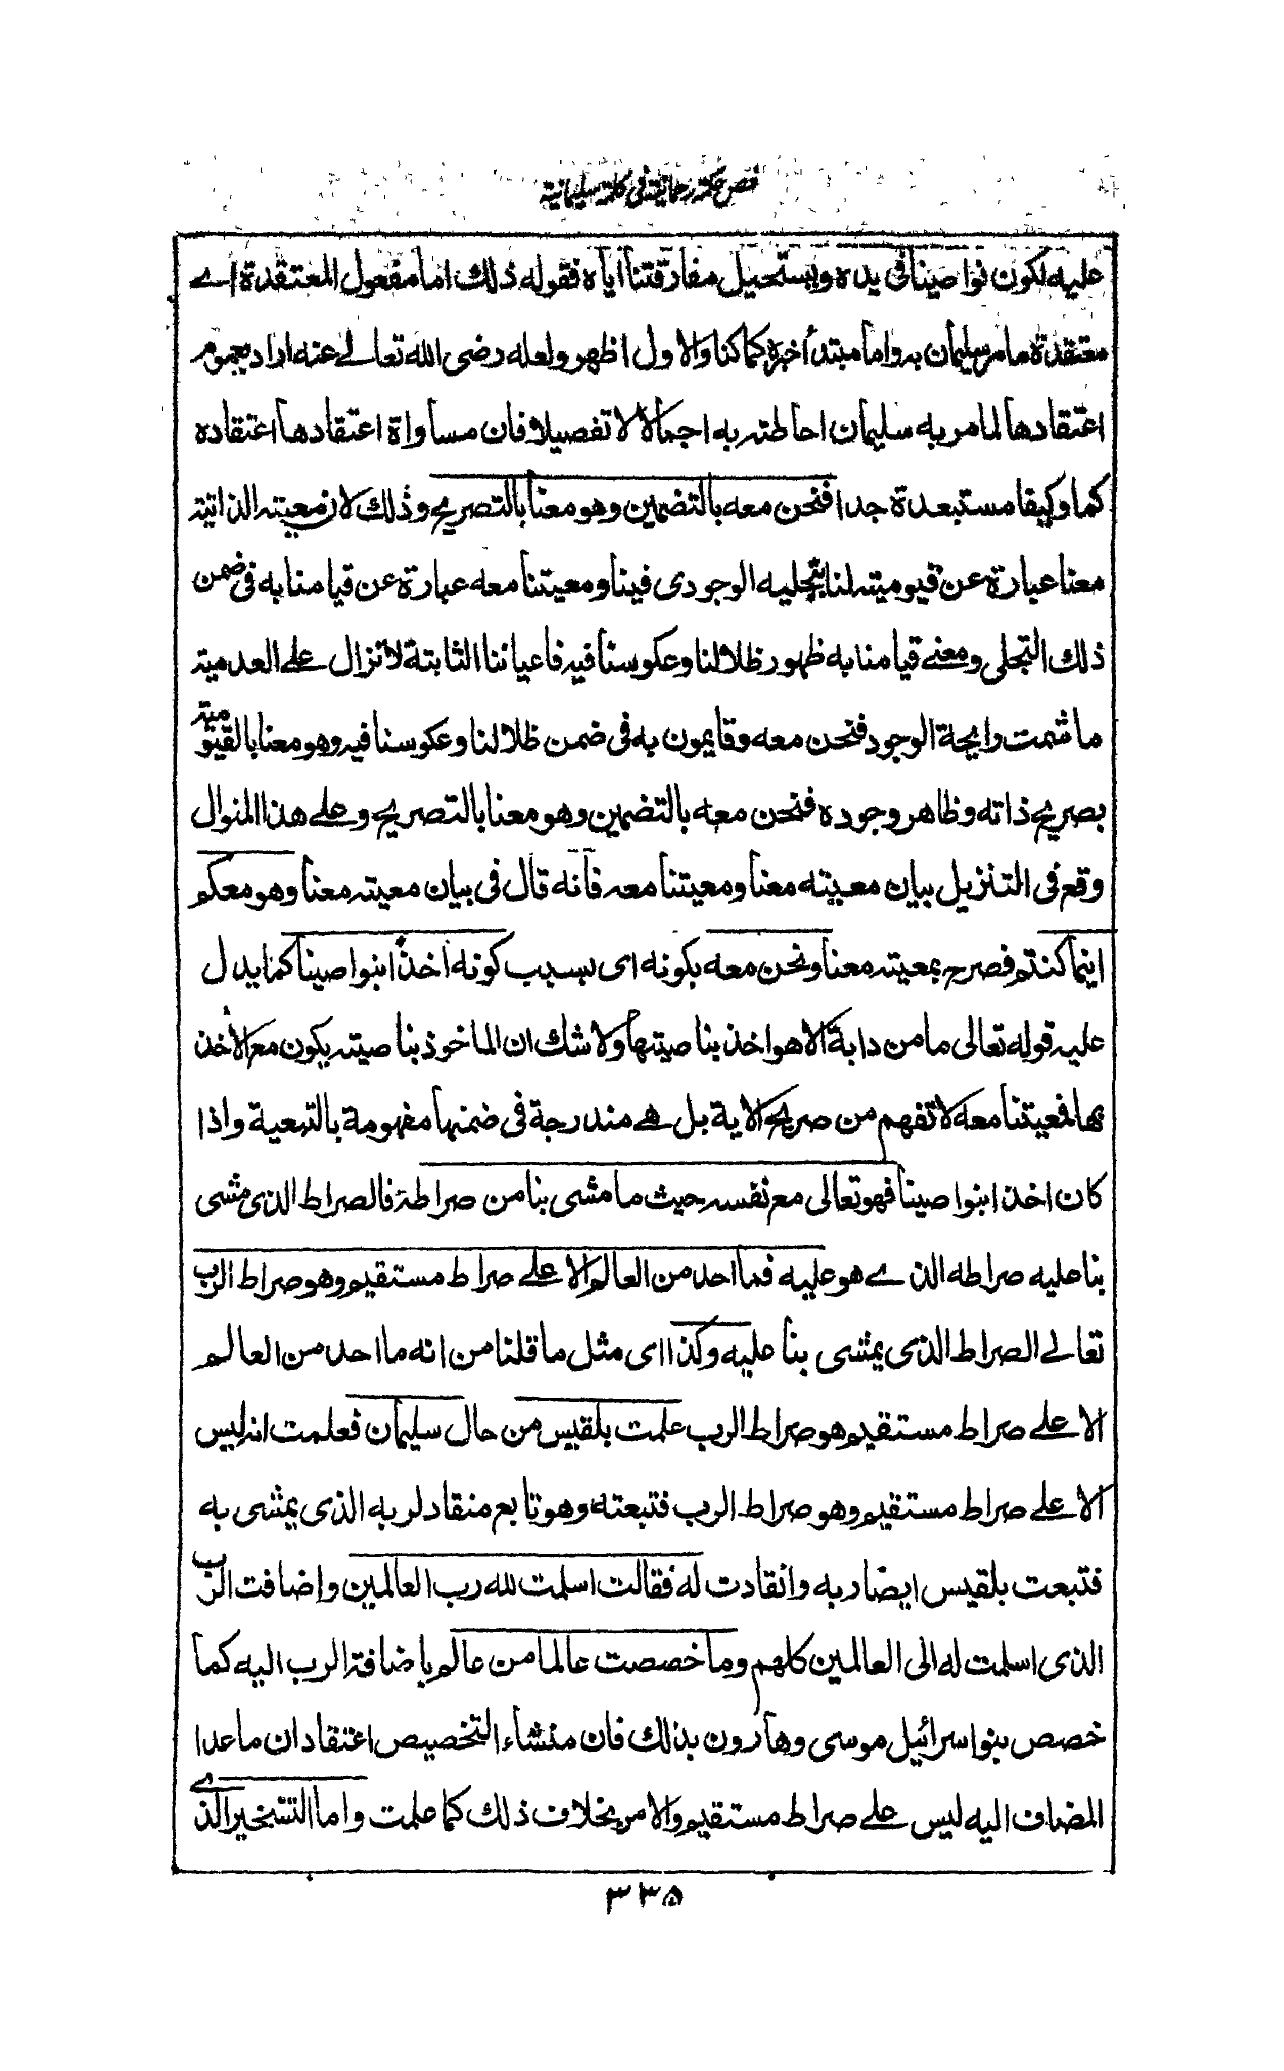 فص حكمة رحمانية في كلمة سليمانية
عليه لكون نواصينا في يده ويستحيل مفارقتنا اياه فقوله ذلك اما مفعول المعتقدة اے
معتقدة ما مر سليمان به واما مبتدأ خبره كما كنا والاول اظهر ولعله رضى الله تعالے عنه اراد بعموم
اعتقادها لما مر به سليمان احاطته به اجمالا لا تفصيلا فان مساواة اعتقادها اعتقاده
كما وكيفا مستبعدة جدا فنحن معه بالتضمين وهو معنا بالتصريح وذلك لان معيته الذاتية
معنا عبارة عن قيوميته لنا بتجليه الوجودى فينا ومعيتنا معه عبارة عن قيامنا به فى ضمن
ذلك التجلى ومعنے قيامنا به ظهور ظلالنا وعكوسنا فيه فاعياننا الثابتة لا تزال علے العدمية
ما شمت رايحة الوجود فنحن معه وقايمون به فى ضمن ظلالنا وعكوسنا فيه وهو معنا بالقيومية
بصريح ذاته وظاهر وجوده فنحن معه بالتضمين وهو معنا بالتصريح وعلے هذا المنوال
وقع فى التنزيل بيان معيته معنا ومعيتنا معه فانه قال فى بيان معيته معنا وهو معكم
اينما كنتم فصرح بمعيته معنا ونحن معه بكونه اى بسبب كونه اخذا بنواصينا كما يدل
عليه قوله تعالى ما من دابة الا هو اخذ بناصيتها ولا شك ان الماخوذ بناصيته يكون مع الأخذ
بها فمعيتنا معه لا تفهم من صريح الاية بل هے مندرجة فى ضمنها مفهومة بالتبعية واذا
كان اخذ ابنواصينا فهو تعالى مع نفسه حيث ما مشى بنا من صراطه فالصراط الذى مشى
بنا عليه صراطه الذے هو عليه فما احد من العالم الا علے صراط مستقيم وهو صراط الرب
تعالے الصراط الذى يمشى بنا عليه وكذا اى مثل ما قلنا من انه ما احد من العالم
الا علے صراط مستقيم هو صراط الرب علمت بلقيس من حال سليمان فعلمت انه ليس
الا علے صراط مستقيم وهو صراط الرب فتبعته وهو تابع منقاد لربه الذى يمشى به
فتبعت بلقيس ايضا ربه وانقادت له فقالت اسلمت لله رب العالمين واضافت الرب
الذى اسلمت له الى العالمين كلهم وما خصصت عالما من عالم باضافة الرب اليه كما
خصص بنوا سرائيل موسى وهارون بذلك فان منشاء التخصيص اعتقاد ان ما عدا
المضاف اليه ليس علے صراط مستقيم والامر بخلاف ذلك كما علمت واما التسخير الذے
٣٣٥